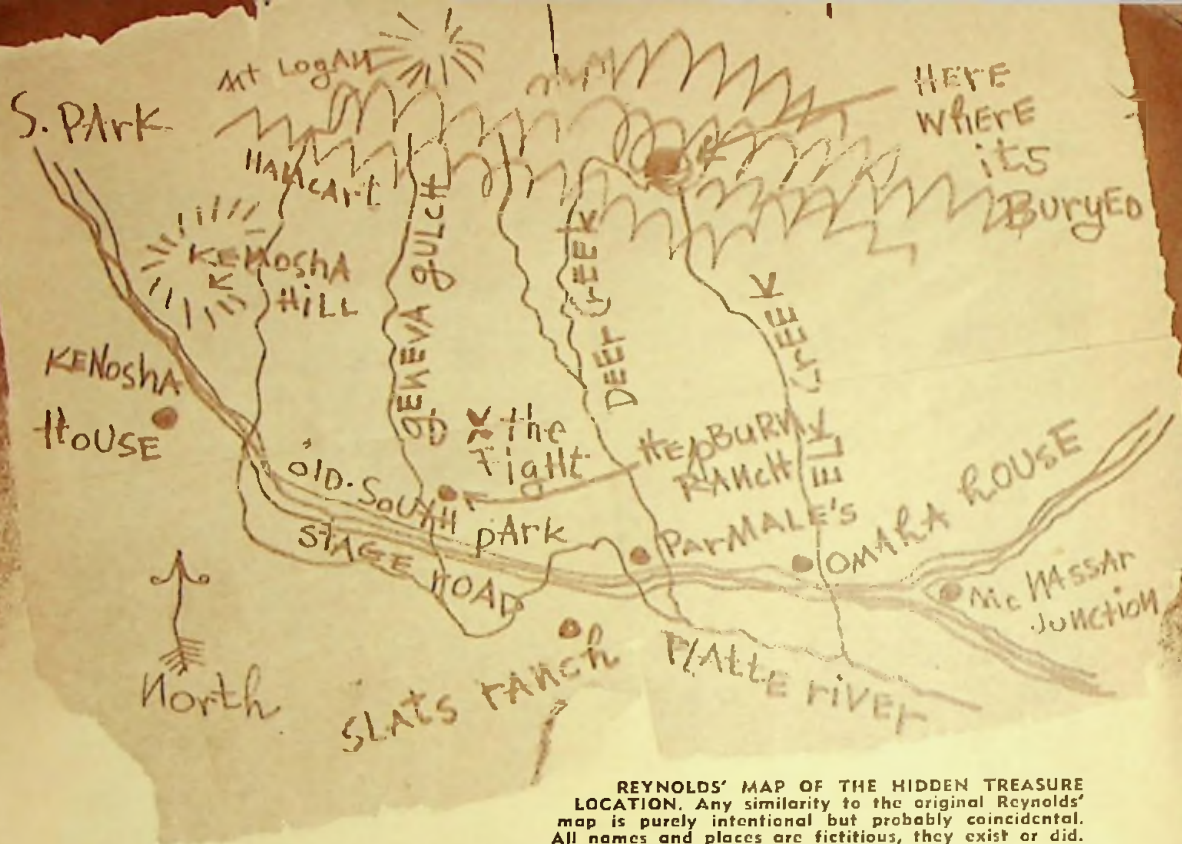 Mt LogAN
S. PArk
HERE
WHERE
its
BuryED
HAlACArt
KENOSHA
HILL
gENEVA gULCH
DEEr CrEEK
ELK CrEEK
KENOSHA
HOUSE
X the
Fight
HEPBURN
RANCH
OlD. SOUtH PArK
STAGE ROAD
PArMALE'S
OMAHA HOUSE
Mc NASSAr
JuNCtiON
North
SLAtS rANCh
PlAttE riVEr
REYNOLDS' MAP OF THE HIDDEN TREASURE
LOCATION. Any similarity to the original Reynolds'
map is purely intentional but probably coincidental.
All names and places are fictitious, they exist or did.